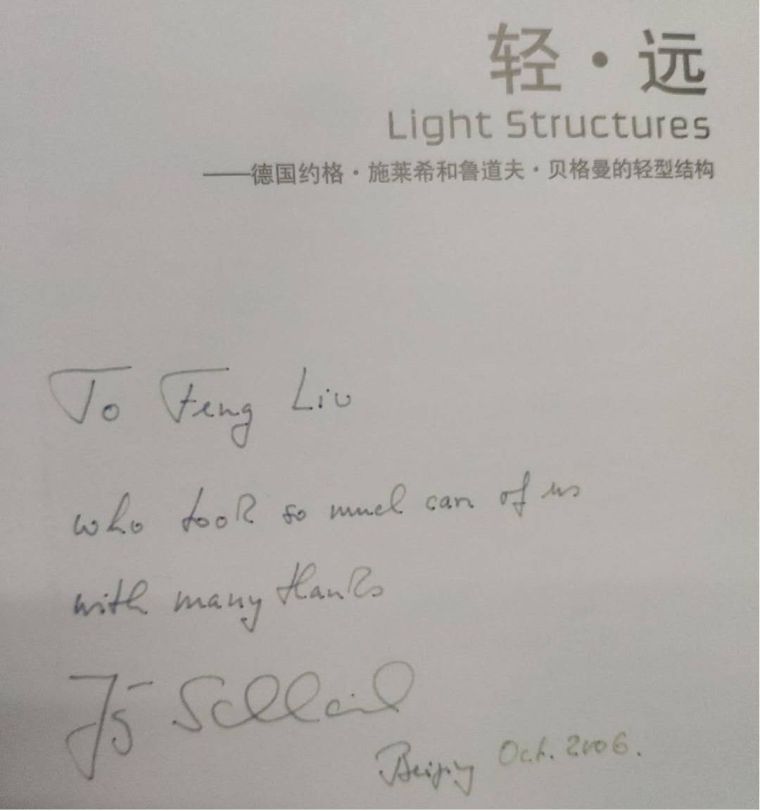 轻·远
Light Structures
——德国约格·施莱希和鲁道夫·贝格曼的轻型结构
To Feng Liu
who took so much care of us
with many thanks
Jörg Schlaich
Beijing Oct. 2006.